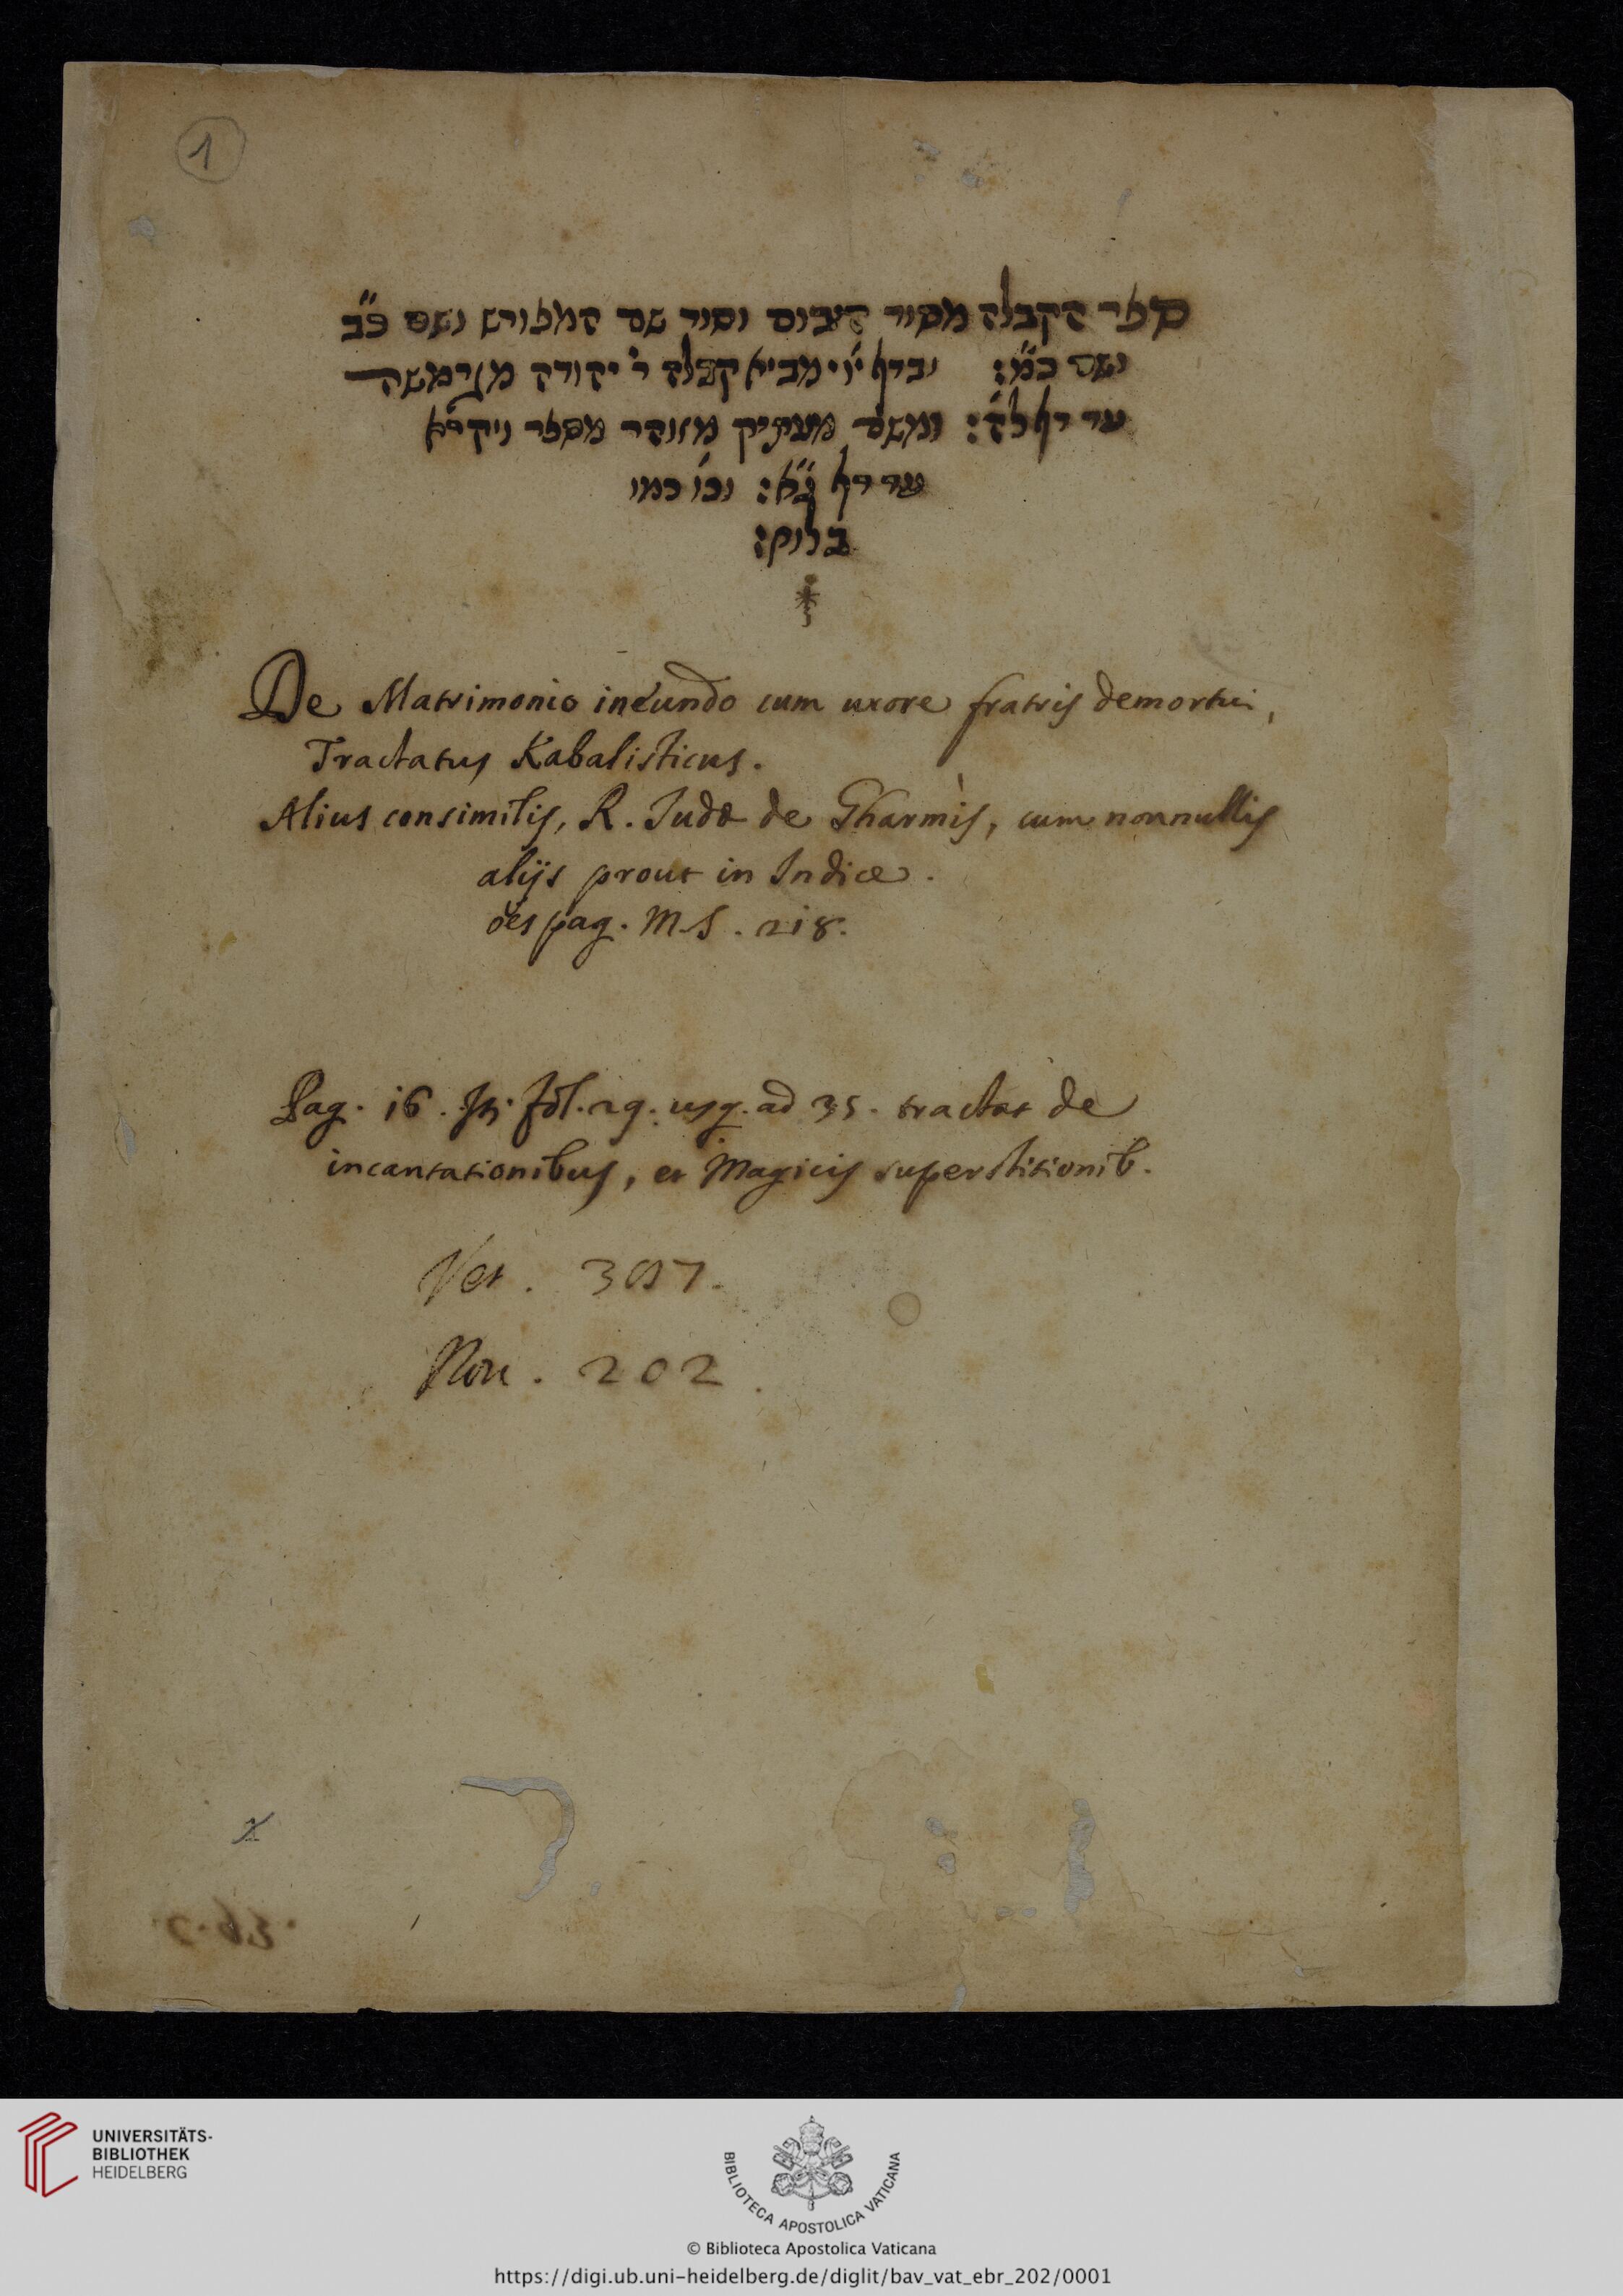 1
ספר הקבלה מסוד היבום וסוד שם המפורש ושם כ״ב
ושם במ״ן: ובדף י״ו מביא קבלה ר' יהודה
עד דף ל״ה: ומשם מעתיק מזוהר מספר ויקרא
עד דף נ״א: וכו' כמו
בלוח:
De Matrimonio ineundo cum uxore fratris demortui,
Tractatus Kabalisticus.
Alius consimilis, R. Judæ de Gharmis, cum nonnullis
alijs prout in Indice.
oēs pag. M.S. 218.
Pag. 16. fol. 29. usq. ad 35. tractat de
incantationibus, et Magicis superstitionib.
Vet. 397.
Nou. 202.
UNIVERSITÄTS-
BIBLIOTHEK
HEIDELBERG
BIBLIOTECA APOSTOLICA VATICANA
© Biblioteca Apostolica Vaticana
https://digi.ub.uni-heidelberg.de/diglit/bav_vat_ebr_202/0001